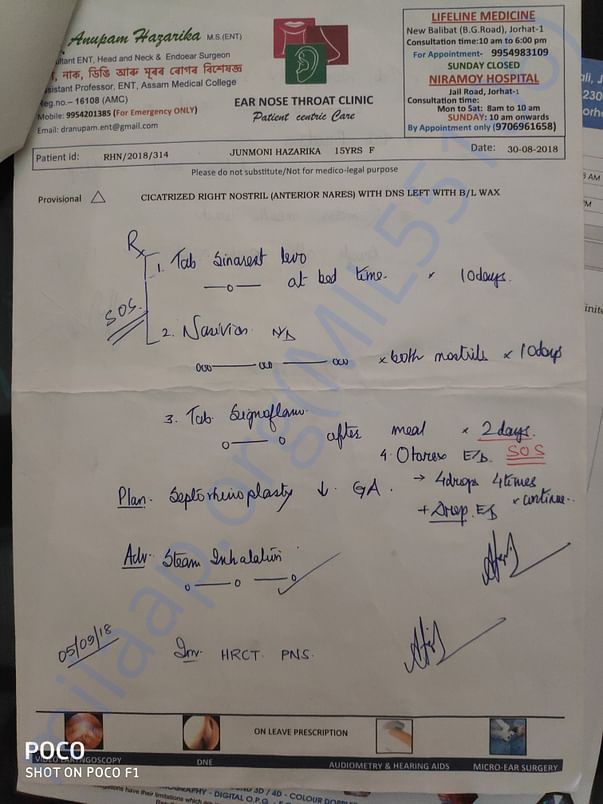 Anupam Hazarika M.S.(ENT)
ultant ENT, Head and Neck & Endoear Surgeon
নাক, ডিঙি আৰু মূৰৰ ৰোগৰ বিশেষজ্ঞ
sistant Professor, ENT, Assam Medical College
eg.no.– 16108 (AMC)
Mobile: 9954201385 (For Emergency ONLY)
Email: dranupam.ent@gmail.com
EAR NOSE THROAT CLINIC
Patient centric Care
LIFELINE MEDICINE
New Balibat (B.G.Road), Jorhat-1
Consultation time:10 am to 6:00 pm
For Appointment- 9954983109
SUNDAY CLOSED
NIRAMOY HOSPITAL
Jail Road, Jorhat-1
Consultation time:
Mon to Sat: 8am to 10 am
SUNDAY: 10 am onwards
By Appointment only (9706961658)
Patient id: RHN/2018/314 JUNMONI HAZARIKA 15YRS F Date: 30-08-2018
Please do not substitute/Not for medico-legal purpose
Provisional △ CICATRIZED RIGHT NOSTRIL (ANTERIOR NARES) WITH DNS LEFT WITH B/L WAX
Rx
1. Tab Sinarest levo
at bed time. x 10days.
SOS.
2. Nasivion N/D
x both nostrils x 10days
3. Tab Signoflam
after meal x 2 days.
4. Otorex E/D. SOS
→ 4drops 4times
x continue..
Plan. Septorhinoplasty ↓ GA.
+ Drop. ED
Adv. Steam Inhalation
05/09/18
Inv. HRCT. PNS.
ON LEAVE PRESCRIPTION
DNE
AUDIOMETRY & HEARING AIDS
MICRO-EAR SURGERY
POCO
SHOT ON POCO F1